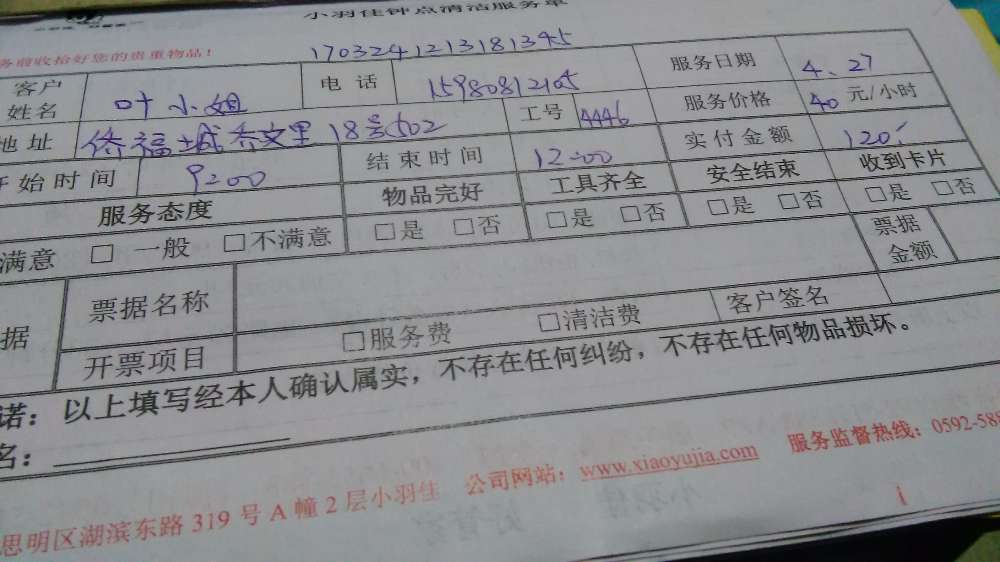 小羽佳钟点清洁服务单
务前收拾好您的贵重物品！
1703241213181345
客户姓名 叶小姐 电话 15980812105 服务日期 4.27
地址 侨福城香文里18号502 工号 4446 服务价格 40 元/小时
开始时间 9:00 结束时间 12:00 实付金额 120
服务态度 物品完好 工具齐全 安全结束 收到卡片
满意 □ 一般 □不满意 □是 □否 □是 □否 □是 □否 □是 □否
据 票据名称 票据金额
开票项目 □服务费 □清洁费 客户签名
诺：以上填写经本人确认属实，不存在任何纠纷，不存在任何物品损坏。
名：
思明区湖滨东路 319 号 A 幢 2 层小羽佳 公司网站：www.xiaoyujia.com 服务监督热线：0592-588